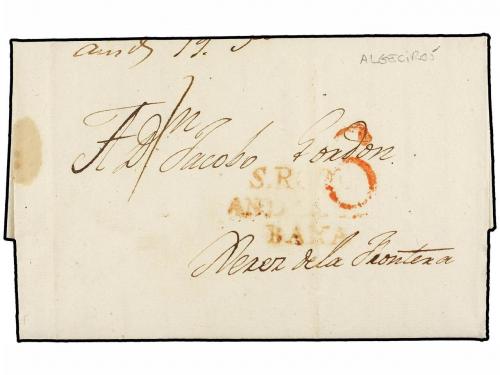 19.
ALGECIRAS
A Dn Jacobo Gordon.
3
S.R
AND
BAXA
Xerez de la Frontera